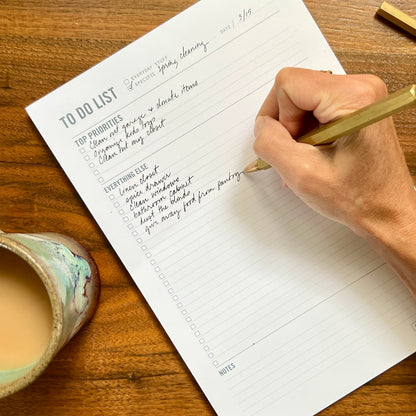 TO DO LIST
EVERYDAY STUFF
SPECIFIC Spring cleaning
DATE / 3/15
TOP PRIORITIES
Clean out garage & donate items
Organize kids toys
Clean out my closet
EVERYTHING ELSE
linen closet
spice drawer
clean windows
bathroom cabinet
dust the blinds
give away food from pantry
NOTES